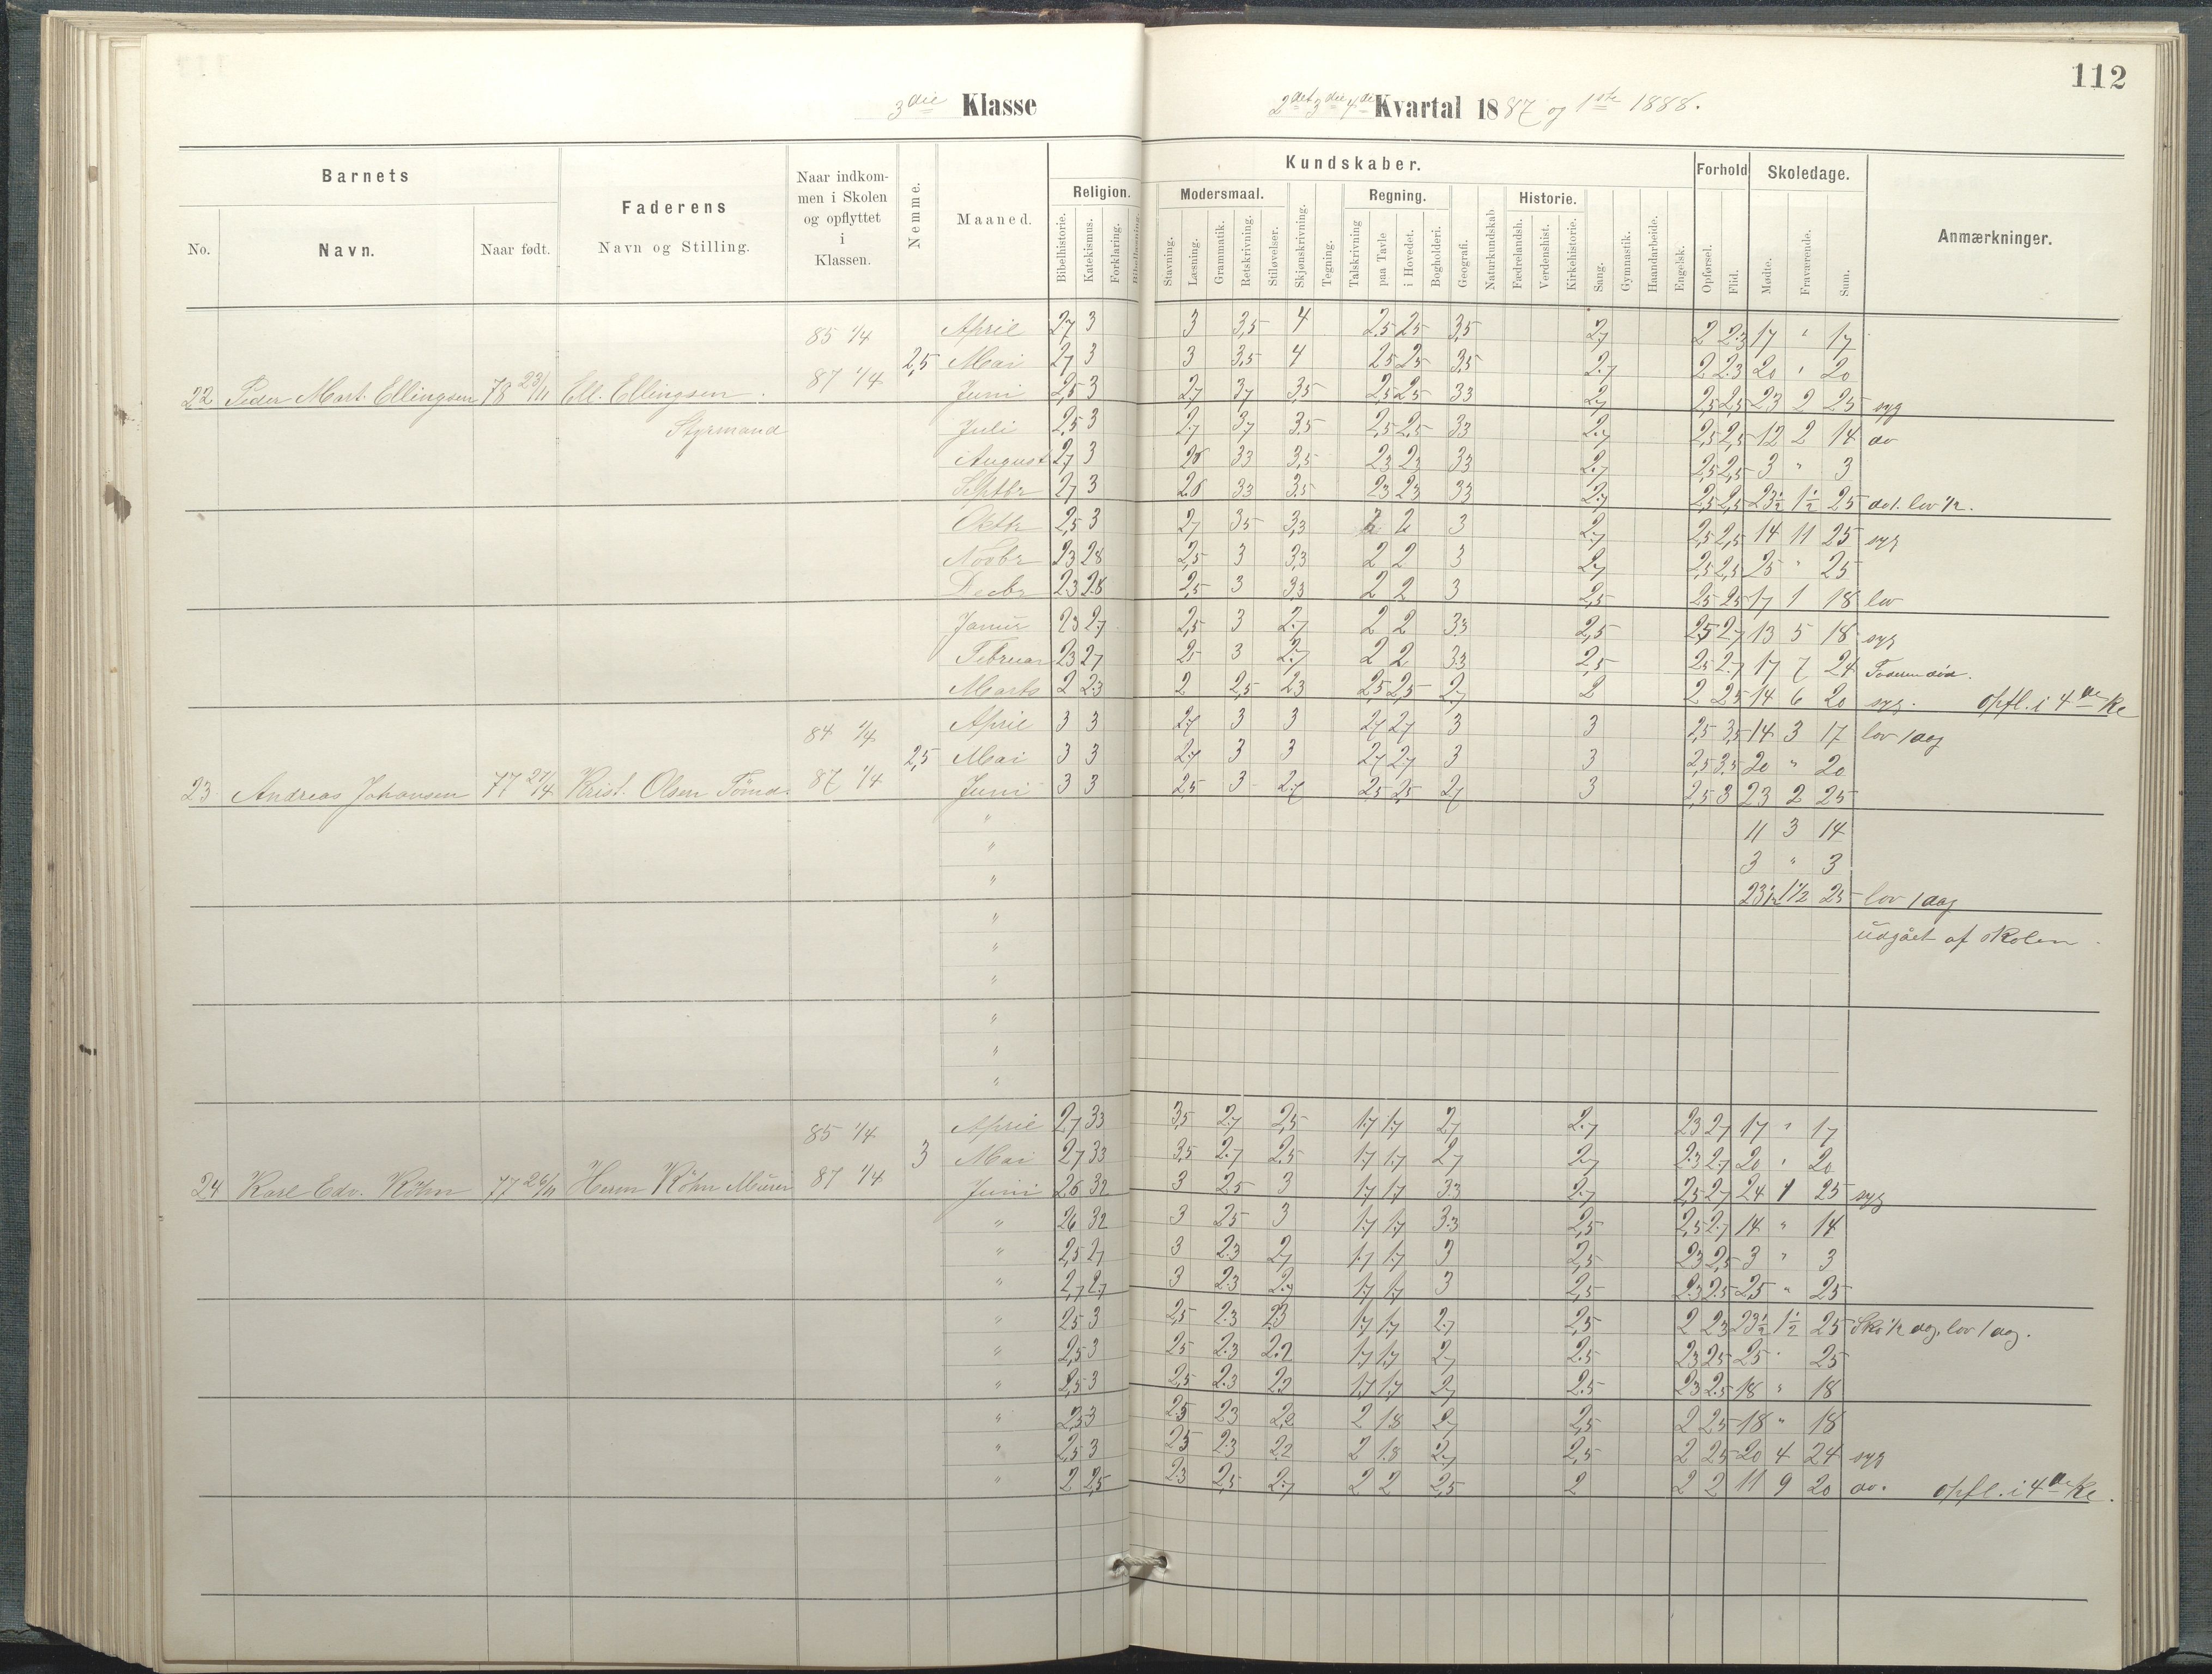 112
3die Klasse
2det 3die 4de Kvartal 1887 og 1ste 1888.
Barnets
No.
Navn.
Naar født.
Faderens
Navn og Stilling.
Naar indkom-
men i Skolen
og opflyttet
i
Klassen.
Nemme.
Maaned.
Kundskaber.
Religion.
Bibelhistorie.
Katekismus.
Forklaring.
Bibellæsning.
Modersmaal.
Stavning.
Læsning.
Grammatik.
Retskrivning.
Stiløvelser.
Skjønskrivning.
Tegning.
Regning.
Talskrivning
paa Tavle
i Hovedet.
Bogholderi.
Geografi.
Naturkundskab
Historie.
Fædrelandsh.
Verdenshist.
Kirkehistorie.
Sang.
Gymnastik.
Haandarbeide.
Engelsk.
Forhold
Opførsel.
Flid.
Skoledage.
Mødte.
Fraværende.
Sum.
Anmærkninger.
85 1/4 April 2,7 3 3 3,5 4 2,5 2,5 3,5 2,7 2 2.3 17 " 17
2,5 Mai 2,7 3 3 3,5 4 2,5 2,5 3,5 2,7 2 2.3 20 " 20
22 Peder Mart. Ellingsen 78 23/11 Ell. Ellingsen. 87 1/4 Juni 2,5 3 2,7 3,7 3,5 2,5 2,5 3,3 2,7 2,5 2,5 23 2 25 syg
Styrmand Juli 2,5 3 2,7 3,7 3,5 2,5 2,5 3,3 2,7 2,5 2,5 12 2 14 do
August 2,7 3 2,8 3,3 3,5 2,3 2,3 3,3 2,7 2,5 2,5 3 " 3
Septbr 2,7 3 2.8 3,3 3.5 2,3 2,3 3,3 2,7 2,5 2,5 23 1/2 1 1/2 25 do 1. lov 1/2.
Oktbr 2,5 3 2,7 3,5 3,3 2 2 3 2,7 2,5 2,5 14 11 25 syg
Novbr 2,3 2,8 2,5 3 3,3 2 2 3 2,7 2,5 2,5 25 " 25
Decbr 2.3 2.8 2,5 3 3,3 2 2 3 2,5 2,5 2,5 17 1 18 lov
Januar 2,3 2,7 2,5 3 2,7 2 2 3.3 2,5 2,5 2,7 13 5 18 syg
Februar 2,3 2,7 2,5 3 2,7 2 2 3.3 2,5 2,5 2,7 17 7 24
Marts 2 2.3 2 2,5 2,3 2,5 2,5 2,7 2 2 2,5 14 6 20 syg. opfl. i 4de Kl
84 1/4 April 3 3 2,7 3 3 2,7 2,7 3 3 2,5 3,5 14 3 17 lov 1 dag
2,5 Mai 3 3 2,7 3 3 2,7 2,7 3 3 2,5 3.5 20 " 20
23 Andreas Johansen 77 27/4 Krist. Olsen Tømd. 87 1/4 Juni 3 3 2,5 3 2.7 2,5 2,5 2,7 3 2,5 3 23 2 25
" 11 3 14
" 3 " 3
" 23 1/2 1 1/2 25 lov 1 dag
" udgået af skolen
"
"
"
"
"
85 1/4 April 2,7 3,3 3,5 2,7 2,5 1,7 1,7 2,7 2,7 2,3 2,7 17 " 17
3 Mai 2,7 3,3 3,5 2,7 2,5 1,7 1,7 2,7 2,7 2.3 2,7 20 " 20
24 Karl Edv. Köhn 77 26/11 Herm Köhn Murer 87 1/4 Juni 2,6 3,2 3 2,5 3 1,7 1,7 3.3 2,7 2,5 2,7 24 1 25 syg
" 2,6 3,2 3 2,5 3 1,7 1,7 3.3 2,5 2,5 2,7 14 " 14
" 2,5 2,7 3 2,3 2,7 1,7 1,7 3 2,5 2,3 2,5 3 " 3
" 2,7 2,7 3 2,3 2,7 1,7 1,7 3 2,5 2.3 2.5 25 " 25
" 2,5 3 2,5 2,3 2,3 1,7 1,7 2,7 2,5 2 2,3 23 1/2 1 1/2 25 Sko 1/2 dag, lov 1 dag.
" 2,5 3 2,5 2.3 2.2 1,7 1,7 2,7 2.5 2,3 2,5 25 " 25
" 2,5 3 2,5 2,3 2,2 1,7 1,7 2,7 2.5 2,3 2,5 18 " 18
" 2,3 3 2,5 2,3 2,2 2 1,8 2,7 2,5 2 2,5 18 " 18
" 2,5 3 2,5 2,3 2,2 2 1.8 2,7 2,5 2 2,5 20 4 24 syg
" 2 2,5 2,3 2,5 2,7 2 2 2,5 2 2 2 11 9 20 do. opfl. i 4de Kl.